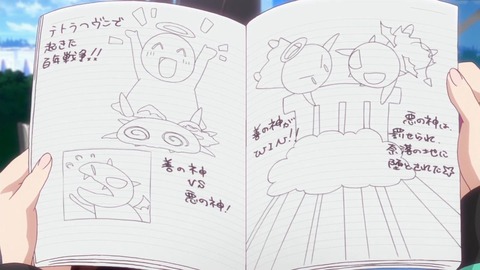 テトラヘヴンで
起きた
百年戦争!!
善の神
VS
悪の神!
善の神が
WIN!!
悪の神は、
罰せられ、
奈落の土地に
堕とされた